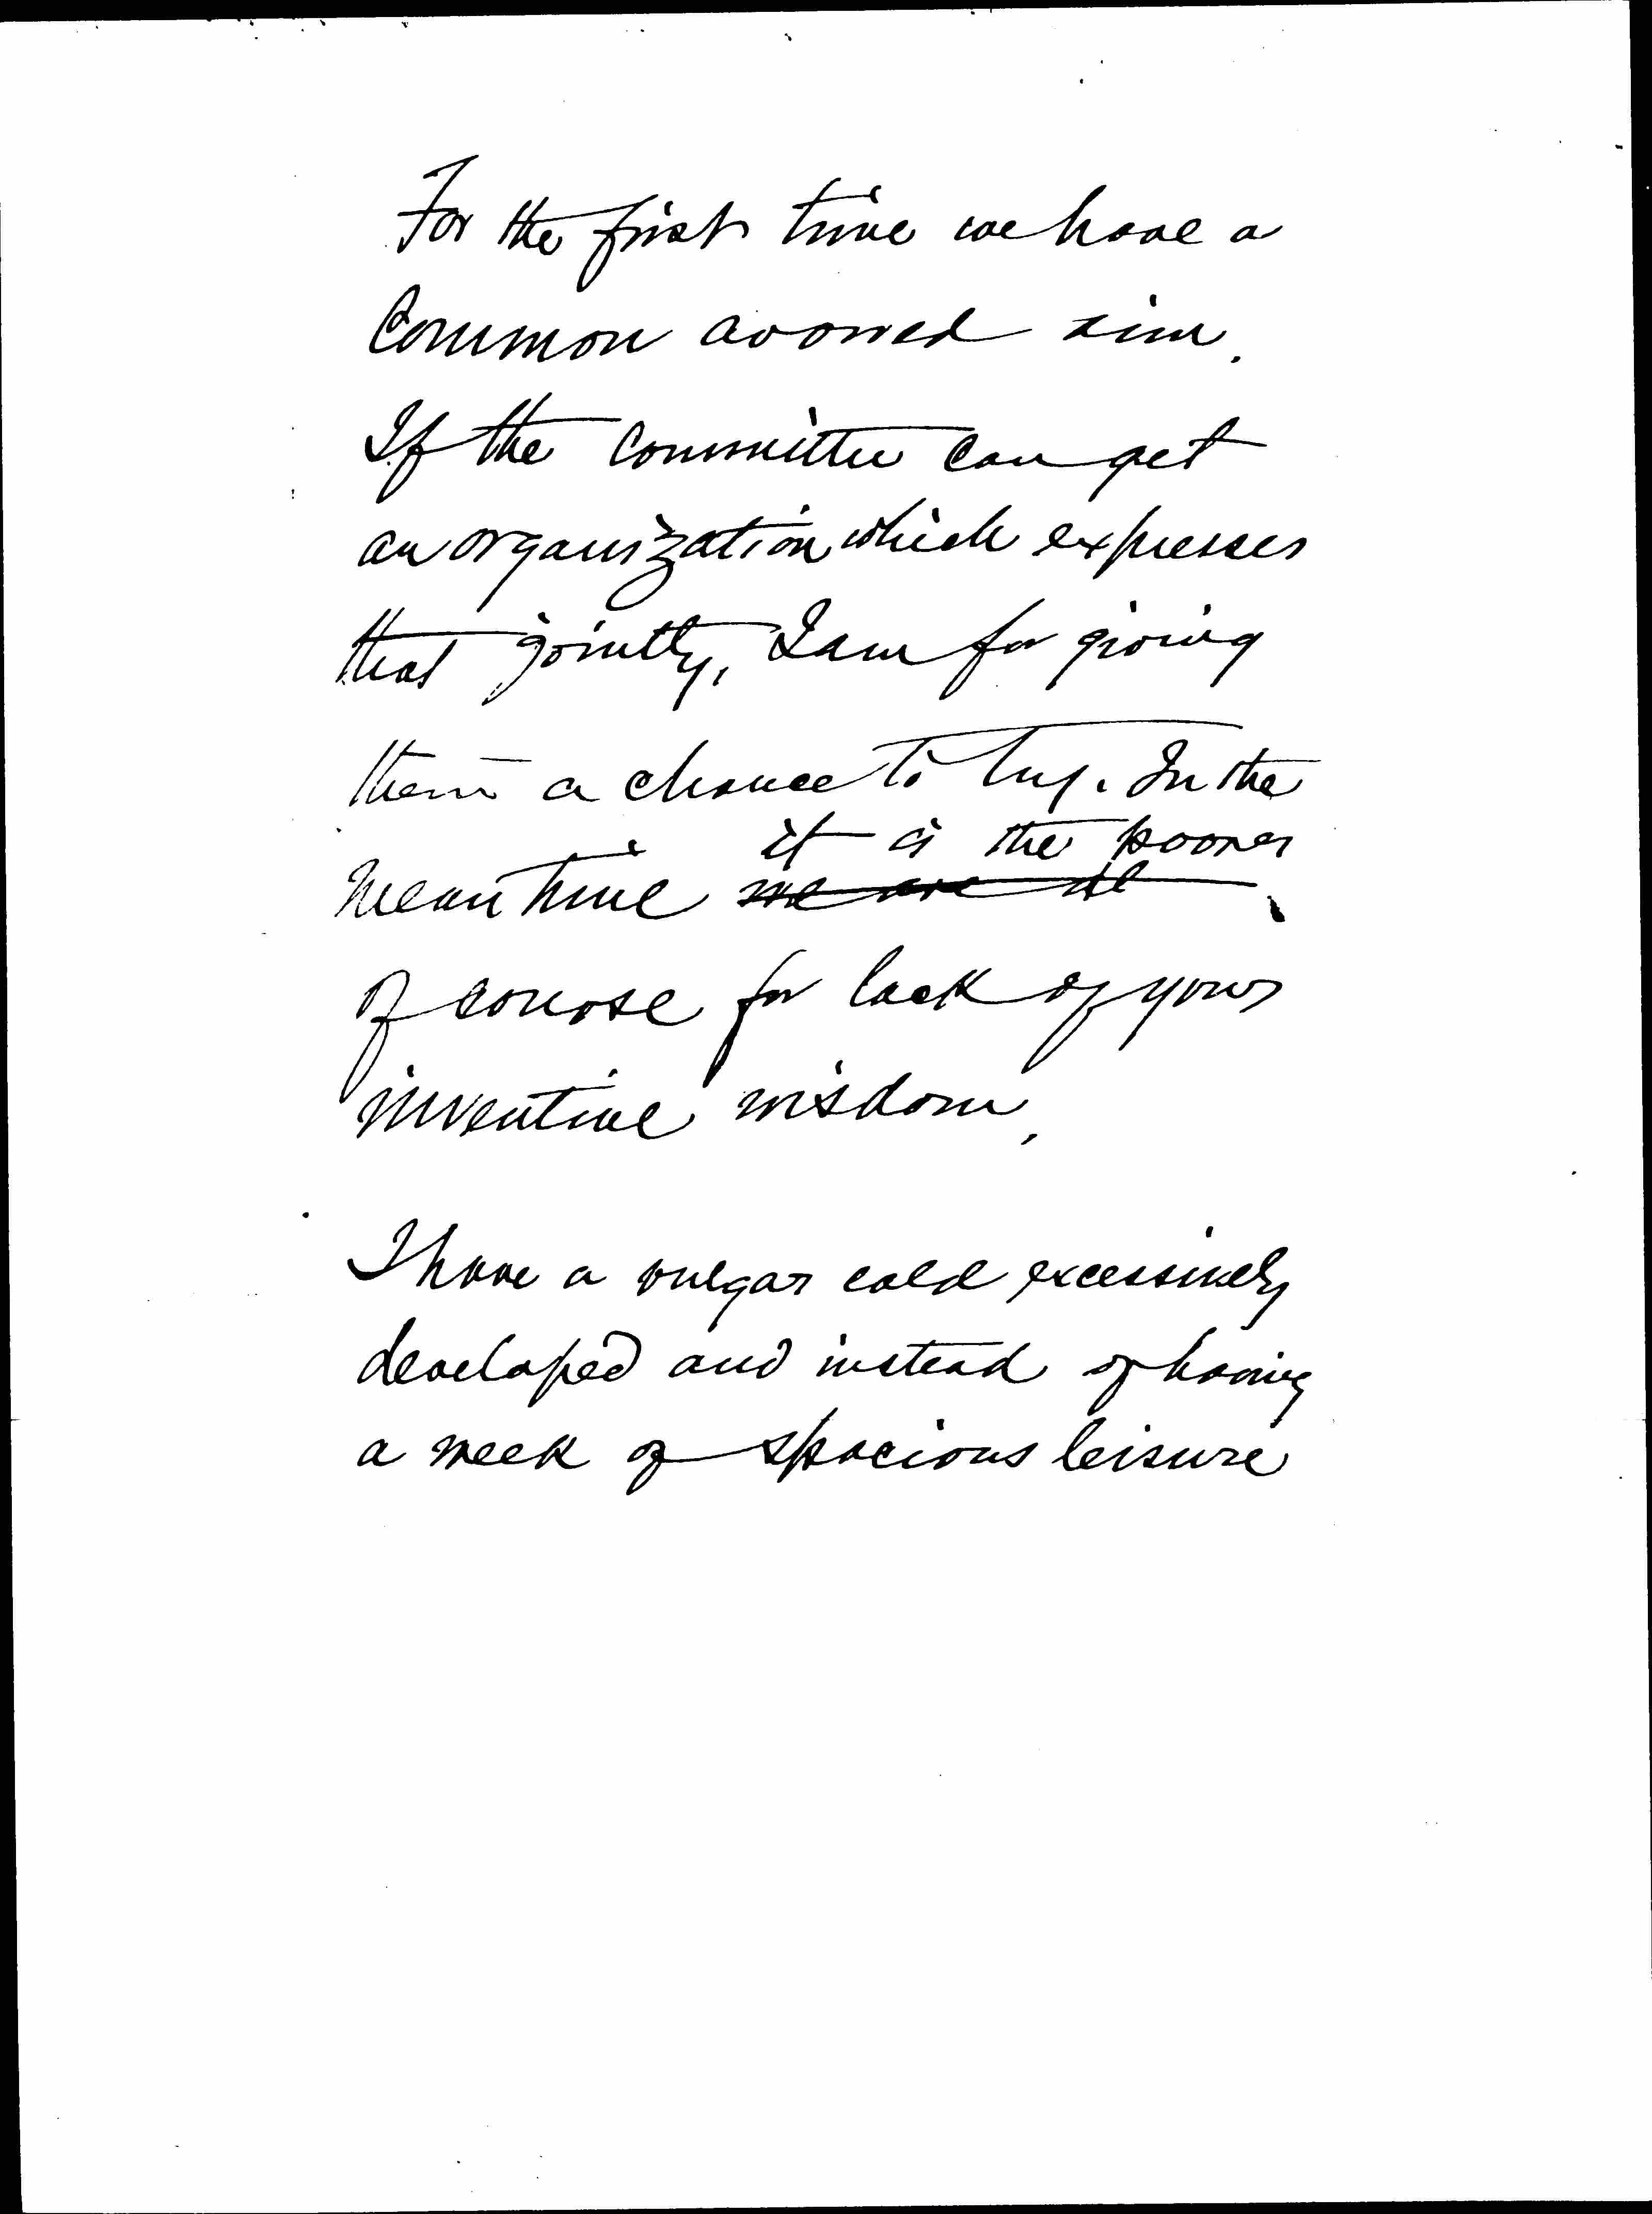 For the first time we have a
Common avowed aim.
If the Committee can get
an organization which expresses
that jointly, I am for giving
them a chance to try. In the
it is the poorer
Meantime we are al
of course for lack of your
inventive wisdom.
I have a vulgar cold excessively
developed and instead of having
a week of spacious leisure